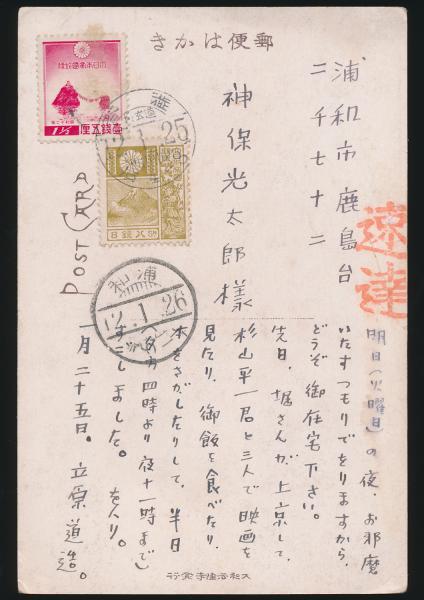 郵便はかき
浦和市鹿島台
二千七十二
神保光太郎様
速達
明日(火曜日)の夜、お邪魔
いたすつもりでをりますから、
どうぞ御在宅下さい。
先日、堀さんが上京して、
杉山平一君と三人で映画を
見たり、御飯を食べたり、
本をさがしたりして、半日
(夕方四時より夜十一時まで)
すごしました。
一月二十五日。立原道造。
POST CARD
大日本帝国郵便
壹銭五厘
1½
8 銭八 8
12.1.25
浦和
12.1.26